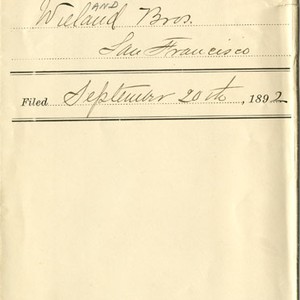 AND
Wieland Bros.
San Francisco
Filed September 20th, 1892